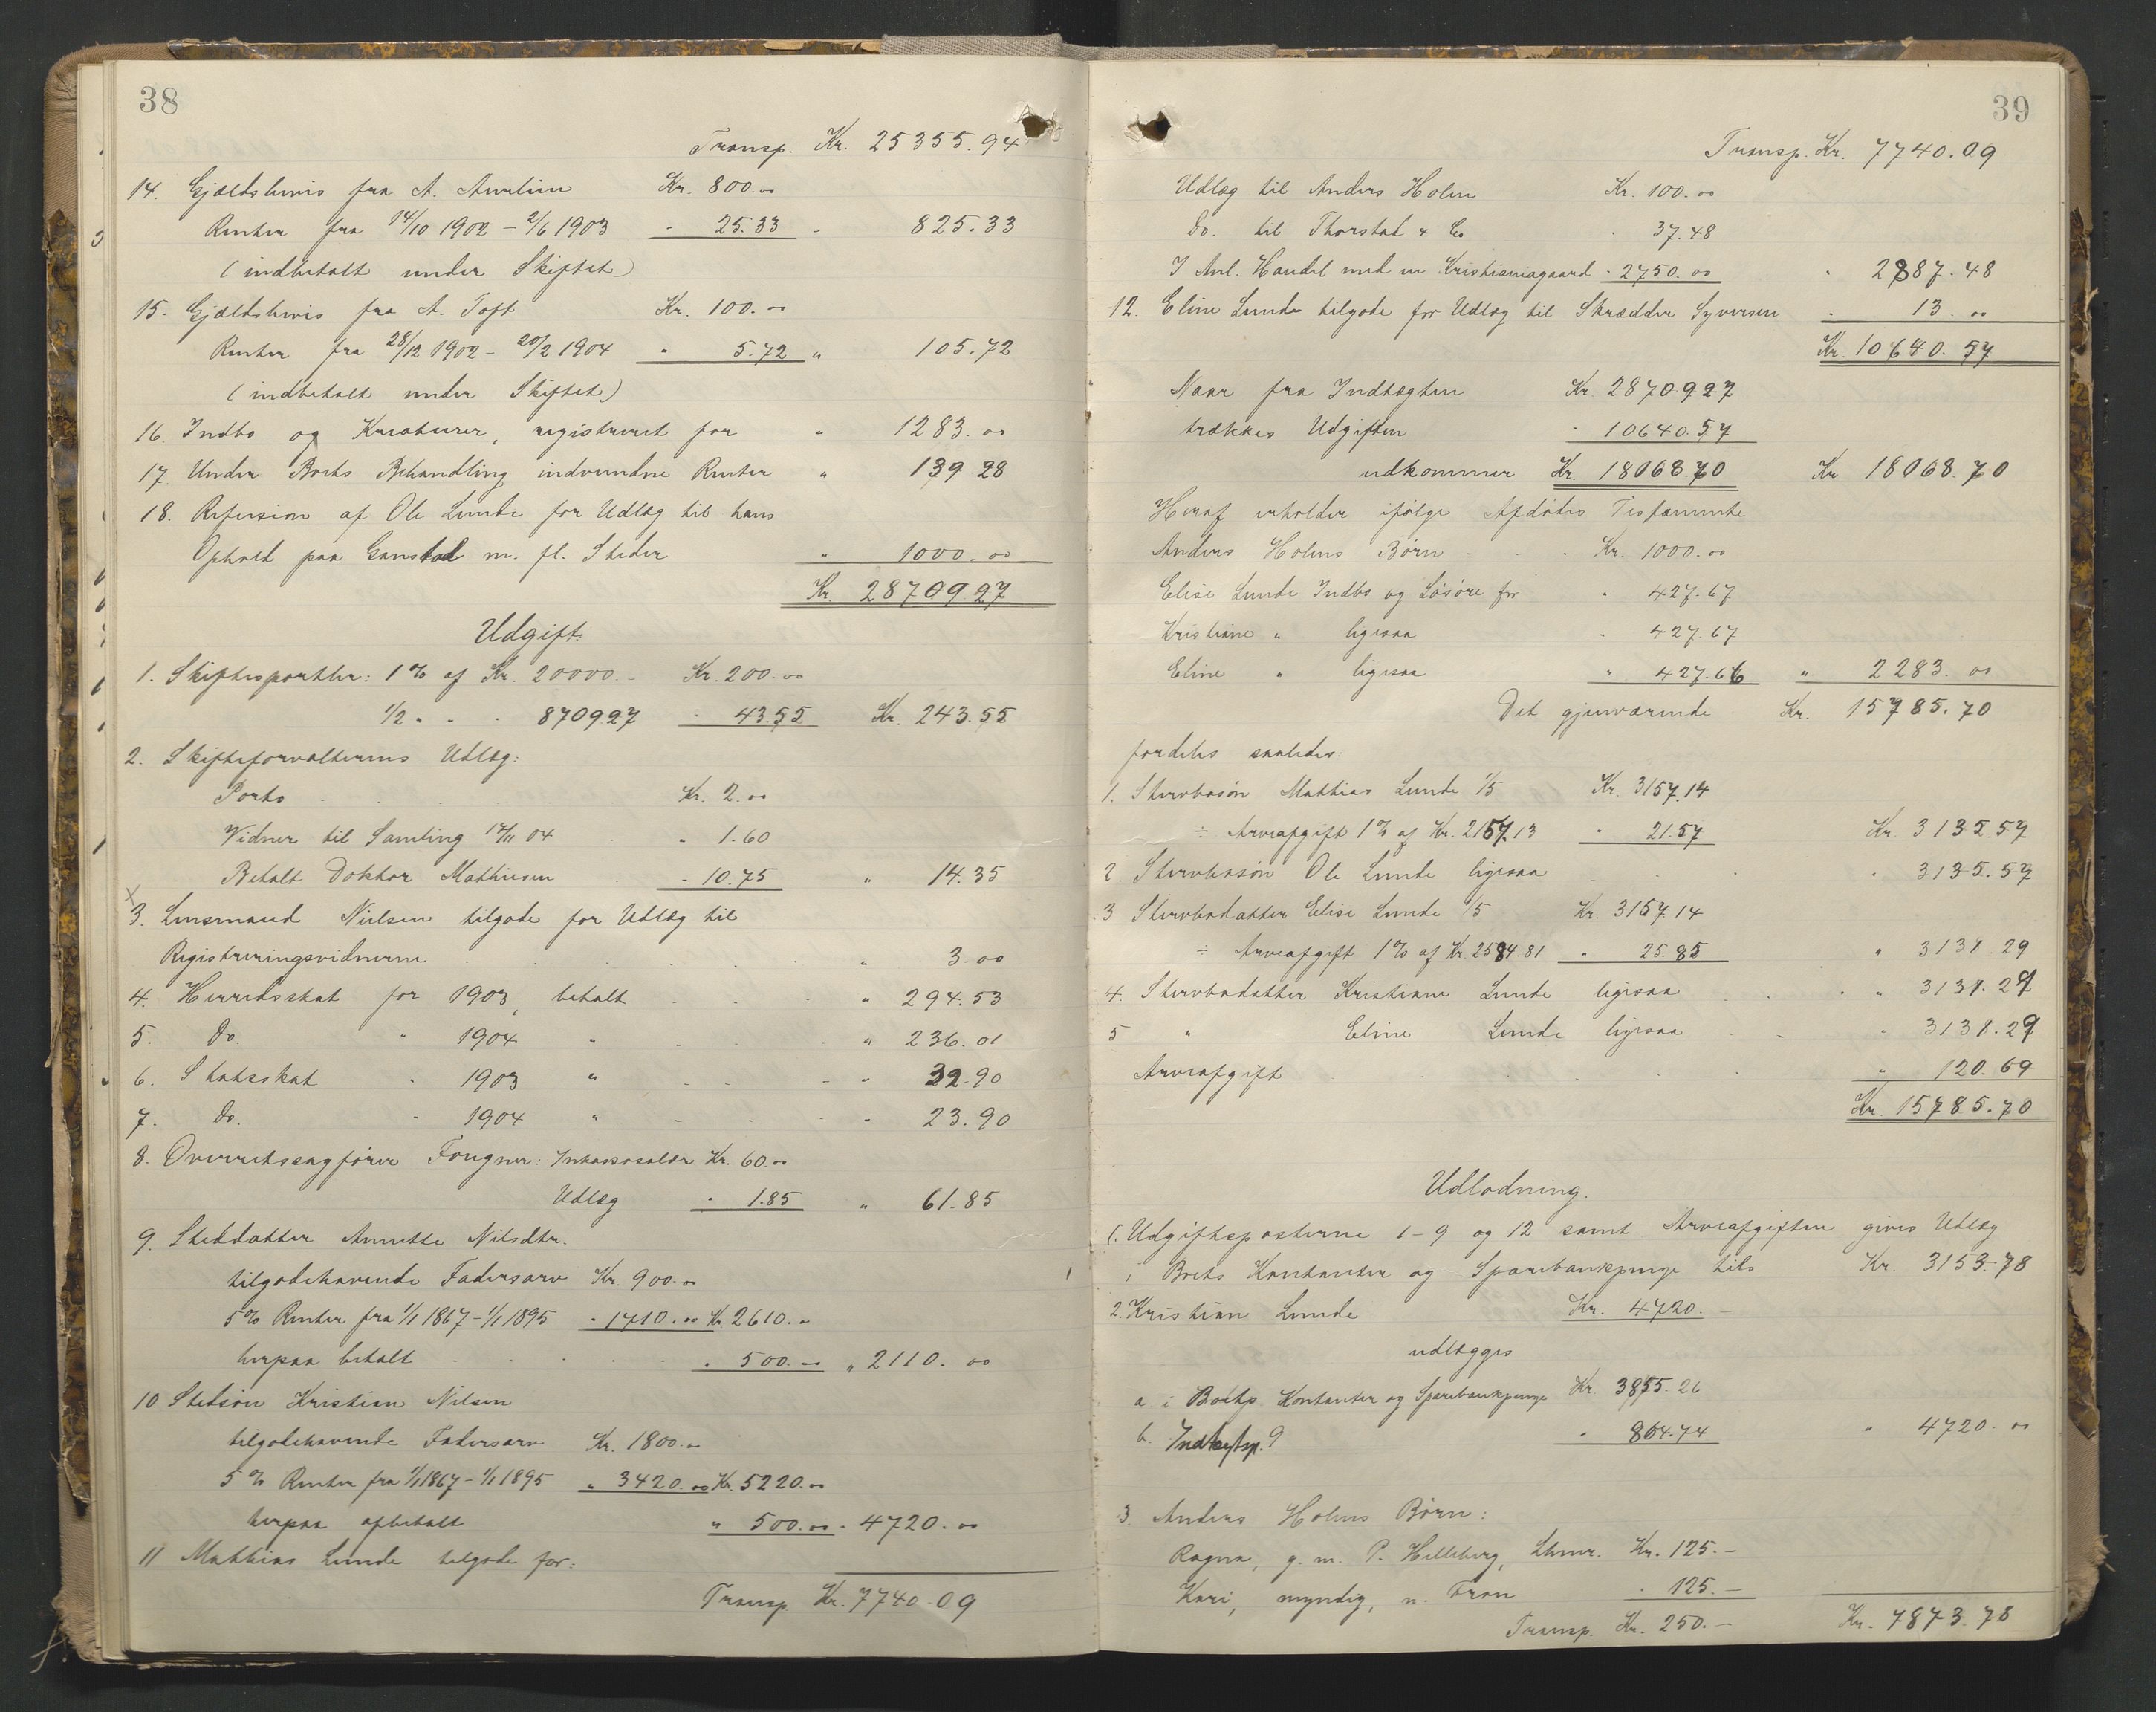 38
Transp. Kr. 25355.94
14. Gjældsbevis fra A. Aurlien Kr. 800.00
Renter fra 14/10 1902 – 2/6 1903 " 25.33 " 825.33
(indbetalt under Skiftet)
15. Gjældsbevis fra A. Toft Kr. 100.00
Renter fra 28/12 1902 – 20/2 1904 " 5.72 " 105.72
(indbetalt under Skiftet)
16. Indbo og Kreaturer, registreret for " 1283.00
17. Under Boets Behandling indvundne Renter " 139.28
18. Refusion af Ole Lunde for Udlæg til hans
Ophold paa Gaustad m. fl. Steder " 1000.00
Kr. 28709 27
Udgift:
1. Skiftesportler: 1 % af Kr. 20000.– Kr. 200.00
1/2 " " " 8709.27 " 43.55 Kr. 243.55
2. Skifteforvalterens Udlæg:
Porto Kr. 2.00
Vidner til Samling 17/11 04 " 1.60
Betalt Doktor Mathiesen " 10.75 " 14.35
x
3. Lensmand Nielsen tilgode for Udlæg til
Registreringsvidnerne " 3.00
4. Herredsskat for 1903, betalt " 294.53
5. Do. " 1904 " " 236.01
6. Statsskat " 1903 " " 32.90
7. Do. " 1904 " " 23.90
8. Overretssagfører Fougner: Inkassosalær Kr. 60.00
Udlæg " 1.85 " 61.85
9. Steddatter Annette Nilsdtr.
tilgodehavende Fadersarv Kr. 900.00
5 % Renter fra 1/1 1867 – 1/1 1895 " 1710.00 Kr. 2610.00
herpaa betalt " 500.00 " 2110.00
10 Stedsøn Kristian Nilsen
tilgodehavende Fadersarv Kr. 1800.00
5 % Renter fra 1/1 1867 – 1/1 1895 " 3420.00 Kr. 5220.00
herpaa afbetalt " 500.00 " 4720.00
11 Mathias Lunde tilgode for:
Transp. Kr. 7740.09
39
Transp. Kr. 7740.09
Udlæg til Anders Holen Kr. 100.00
Do. til Thorstad & Co " 37.48
I Anl. Handel med en Kristianiagaard " 2750.00 " 2887.48
12. Eline Lunde tilgode for Udlæg til Skrædder Syversen " 13.00
Kr. 10640.57
Naar fra Indtægten Kr. 28709.27
trækkes Udgiften " 10640.57
udkommer Kr. 18068.70 Kr. 18068.70
Heraf erholder ifølge Afdødes Testamente
Anders Holens Børn Kr. 1000.00
Elise Lunde Indbo og Løsøre for " 427.67
Kristiane " ligesaa " 427.67
Eline " ligesaa " 427.66 " 2283.00
Det gjenværende Kr. 15785.70
fordeles saaledes:
1. Stervbosøn Mathias Lunde 1/5 Kr. 3157.14
÷ Arveafgift 1 % af Kr. 2157.13 " 21.57 Kr. 3135.57
2. Stervbosøn Ole Lunde ligesaa " 3135.57
3 Stervbodatter Elise Lunde 1/5 Kr. 3157.14
÷ Arveafgift 1 % af Kr. 2584.81 " 25.85 " 3131.29
4. Stervbodatter Kristiane Lunde ligesaa " 3131.29
5 " Eline Lunde ligesaa " 3131.29
Arveafgift " 120.69
Kr. 15785.70
Udlodning.
1. Udgiftsposterne 1–9 og 12 samt Arveafgiften gives Udlæg
i Boets Kontanter og Sparebankpenge tils Kr. 3153.78
2. Kristian Lunde Kr. 4720.–
udlægges
a. i Boets Kontanter og Sparebankpenge Kr. 3855.26
b. Indtægtsp. 9 " 864.74 " 4720.00
3. Anders Holens Børn:
Ragna, g. m. P. Hilleberg, Lhmr. Kr. 125.–
Kari, myndig, n. Fron " 125.–
Transp. Kr. 250.– Kr. 7873.78